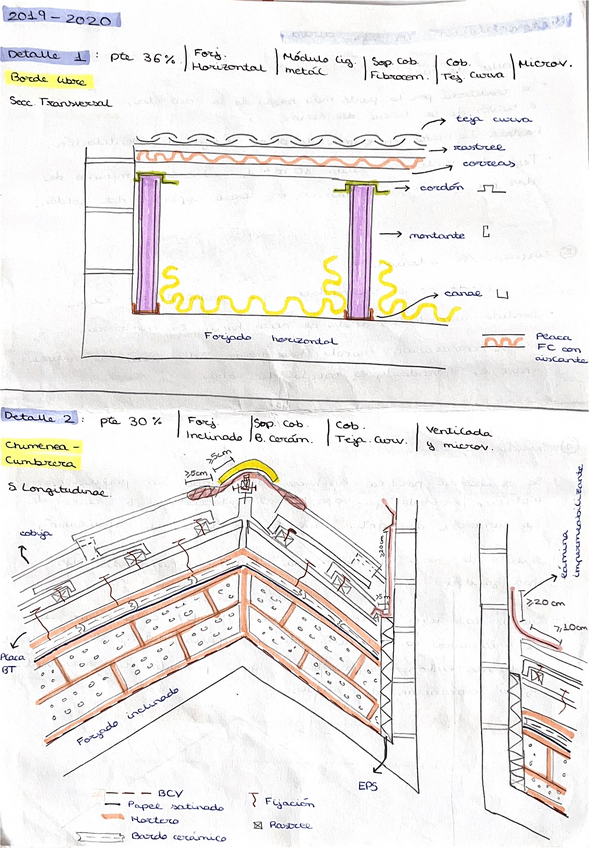 2019-2020
Detalle 1 : pte 36% | Forj. Horizontal | Módulo lig. metál. | Sop. Cob. Fibrocem. | Cob. Tej. Curva | Microv.
Borde libre
Secc. Transversal
teja curva
rastrel
correas
cordón
montante
canal
Forjado horizontal
Placa
FC con
aislante
Detalle 2 : pte 30% | Forj. Inclinado | Sop. Cob. B. Cerám. | Cob. Teja. Curv. | Ventilada y microv.
Chimenea -
Cumbrera
S. Longitudinal
≥5cm
≥5cm
cobija
≥20cm
≥5
lámina
impermeabilizante
≥20cm
≥10cm
Placa
BT
Forjado inclinado
EPS
BCV
Papel satinado
Mortero
Bardo cerámico
Fijación
Rastrel